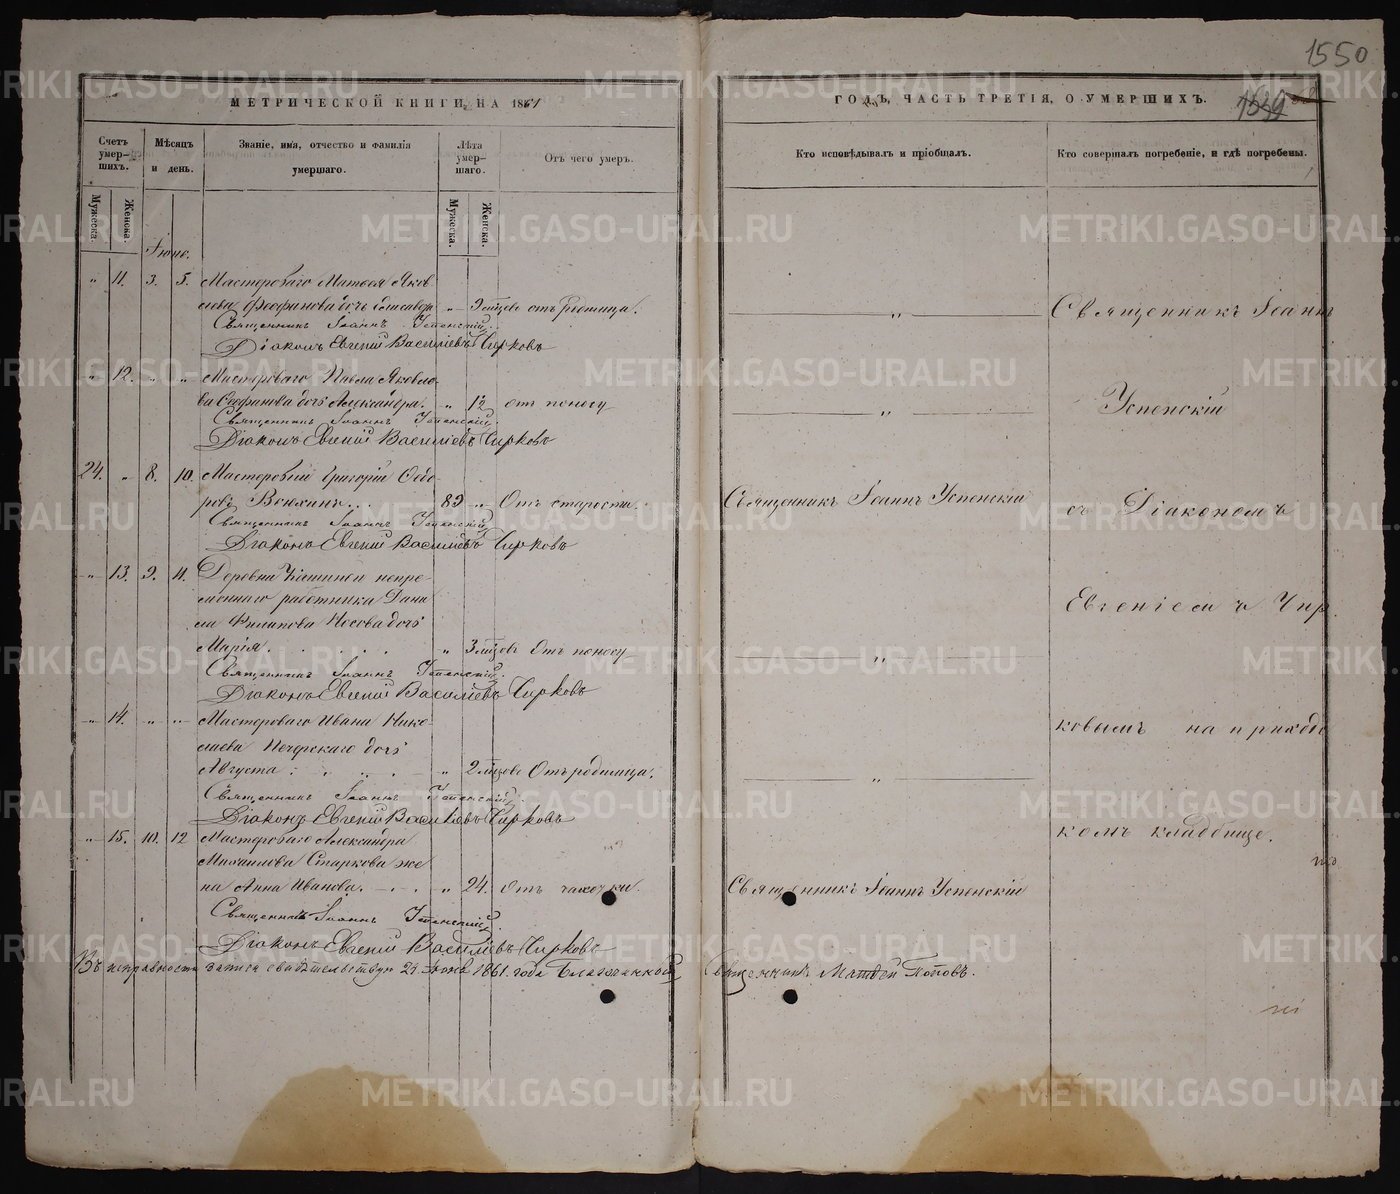 1550
МЕТРИЧЕСКОЙ КНИГИ НА 1861
ГОДЪ, ЧАСТЬ ТРЕТІЯ, О УМЕРШИХЪ.
Счетъ умер-шихъ.
Мужеска.
Женска.
Мѣсяцъ и день.
Званіе, имя, отчество и фамилія умершаго.
Лѣта умер-шаго.
Мужеска.
Женска.
Отъ чего умеръ.
Кто исповѣдывалъ и пріобщалъ.
Кто совершалъ погребеніе, и гдѣ погребены.
Іюнь.
„ 11. 3. 5. Мастероваго Матвея Яков
лева Феофанова дочь Елисавета „ 9 мѣсцовъ отъ родимца. „ Священникъ Іоаннъ
Священникъ Іоаннъ Успенскій
Діаконъ Евгеній Васильевъ Чирковъ
„ 12. „ „ Мастероваго Павла Яковле
ва Феофанова дочь Александра. „ 12 отъ поносу „ Успенскій
Священникъ Іоаннъ Успенскій
Діаконъ Евгеній Васильевъ Чирковъ
24. „ 8. 10. Мастеровый Григорій Ѳедо
ровъ 83 „ Отъ старости. Священникъ Іоаннъ Успенскій съ Діакономъ
Священникъ Іоаннъ Успенскій
Діаконъ Евгеній Васильевъ Чирковъ
„ 13. 9. 11. Деревни Кашиной непре
меннаго работника Дани
ла Филипова Носова дочь Евгеніемъ Чир
Марія. „ 3 мѣсцовъ Отъ поносу „
Священникъ Іоаннъ Успенскій
Діаконъ Евгеній Васильевъ Чирковъ
„ 14. „ „ Мастероваго Ивана Нико
лаева дочь ковымъ на приходс
Августа „ 2 мѣсцовъ Отъ родимца. „
Священникъ Іоаннъ Успенскій
Діаконъ Евгеній Васильевъ Чирковъ
„ 15. 10. 12 Мастероваго Александра комъ кладбище.
Михаилова Старкова же
на Анна Иванова. „ 24. отъ чахотки. Священникъ Іоаннъ Успенскій
Священникъ Іоаннъ Успенскій
Діаконъ Евгеній Васильевъ Чирковъ
Въ исправности записи свидѣтельствую Іюня 1861. года Благочинной Священникъ Матвѣй Поповъ.
METRIKI.GASO-URAL.RU